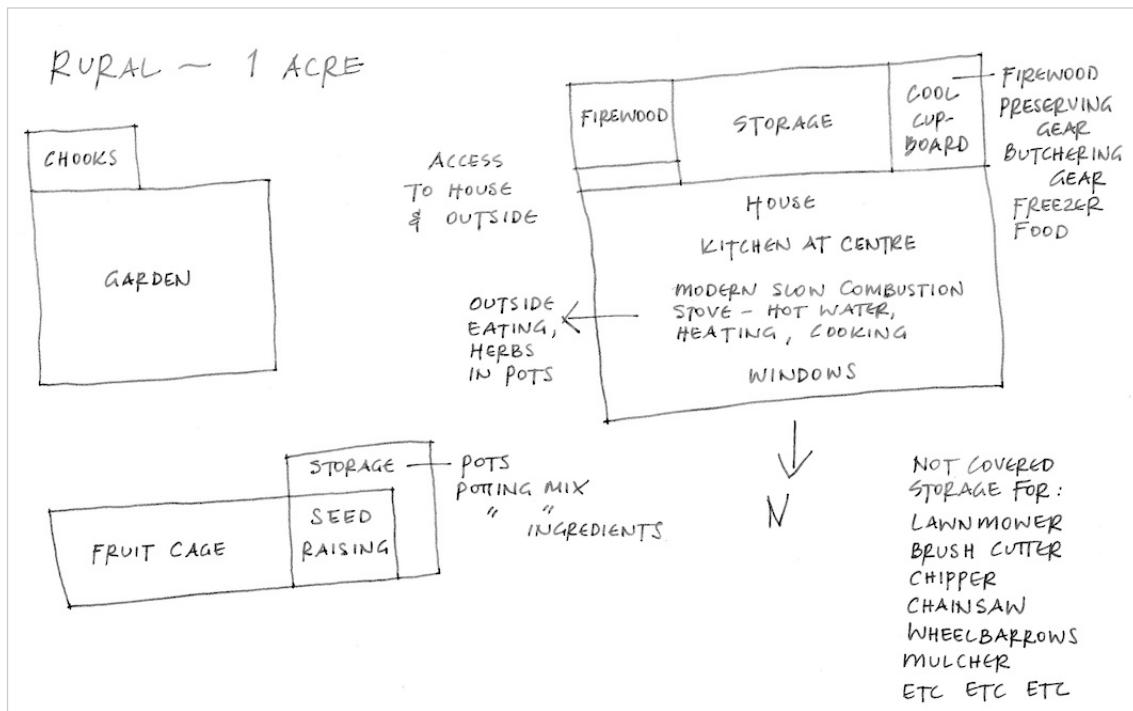 RURAL ~ 1 ACRE
CHOOKS
GARDEN
ACCESS
TO HOUSE
& OUTSIDE
FIREWOOD
STORAGE
COOL
CUP-
BOARD
FIREWOOD
PRESERVING
GEAR
BUTCHERING
GEAR
FREEZER
FOOD
HOUSE
KITCHEN AT CENTRE
MODERN SLOW COMBUSTION
STOVE - HOT WATER,
HEATING, COOKING
WINDOWS
OUTSIDE
EATING,
HERBS
IN POTS
N
STORAGE
POTS
POTTING MIX
" "
INGREDIENTS
SEED
RAISING
FRUIT CAGE
NOT COVERED
STORAGE FOR:
LAWNMOWER
BRUSH CUTTER
CHIPPER
CHAINSAW
WHEELBARROWS
MULCHER
ETC ETC ETC